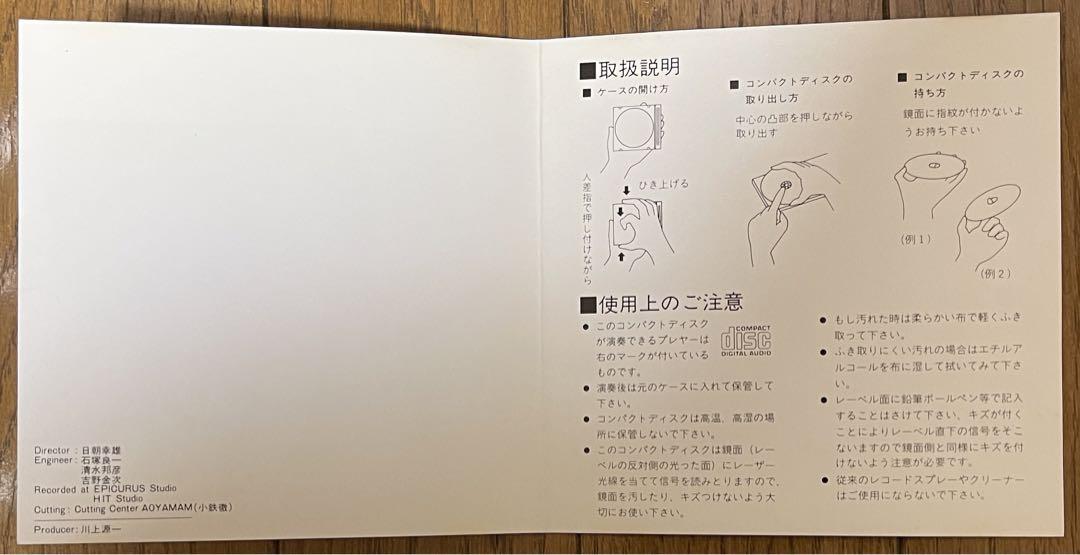 Director : 日朝幸雄
Engineer : 石塚良一
清水邦彦
吉野金次
Recorded at EPICURUS Studio
HIT Studio
Cutting : Cutting Center AOYAMAM(小鉄徹)
Producer : 川上源一
■取扱説明
■ ケースの開け方
人差指で押し付けながら
ひき上げる
■ コンパクトディスクの
取り出し方
中心の凸部を押しながら
取り出す
■ コンパクトディスクの
持ち方
鏡面に指紋が付かないよ
うお持ち下さい
(例1)
(例2)
■使用上のご注意
● このコンパクトディスク
が演奏できるプレヤーは
右のマークが付いている
ものです。
COMPACT
disc
DIGITAL AUDIO
● 演奏後は元のケースに入れて保管して
下さい。
● コンパクトディスクは高温、高湿の場
所に保管しないで下さい。
● このコンパクトディスクは鏡面（レー
ベルの反対側の光った面）にレーザー
光線を当てて信号を読みとりますので、
鏡面を汚したり、キズつけないよう大
切にお使い下さい。
● もし汚れた時は柔らかい布で軽くふき
取って下さい。
● ふき取りにくい汚れの場合はエチルア
ルコールを布に湿して拭いてみて下さ
い。
● レーベル面に鉛筆ボールペン等で記入
することはさけて下さい、キズが付く
ことによりレーベル直下の信号をそこ
ないますので鏡面側と同様にキズを付
けないよう注意が必要です。
● 従来のレコードスプレーやクリーナー
はご使用にならないで下さい。